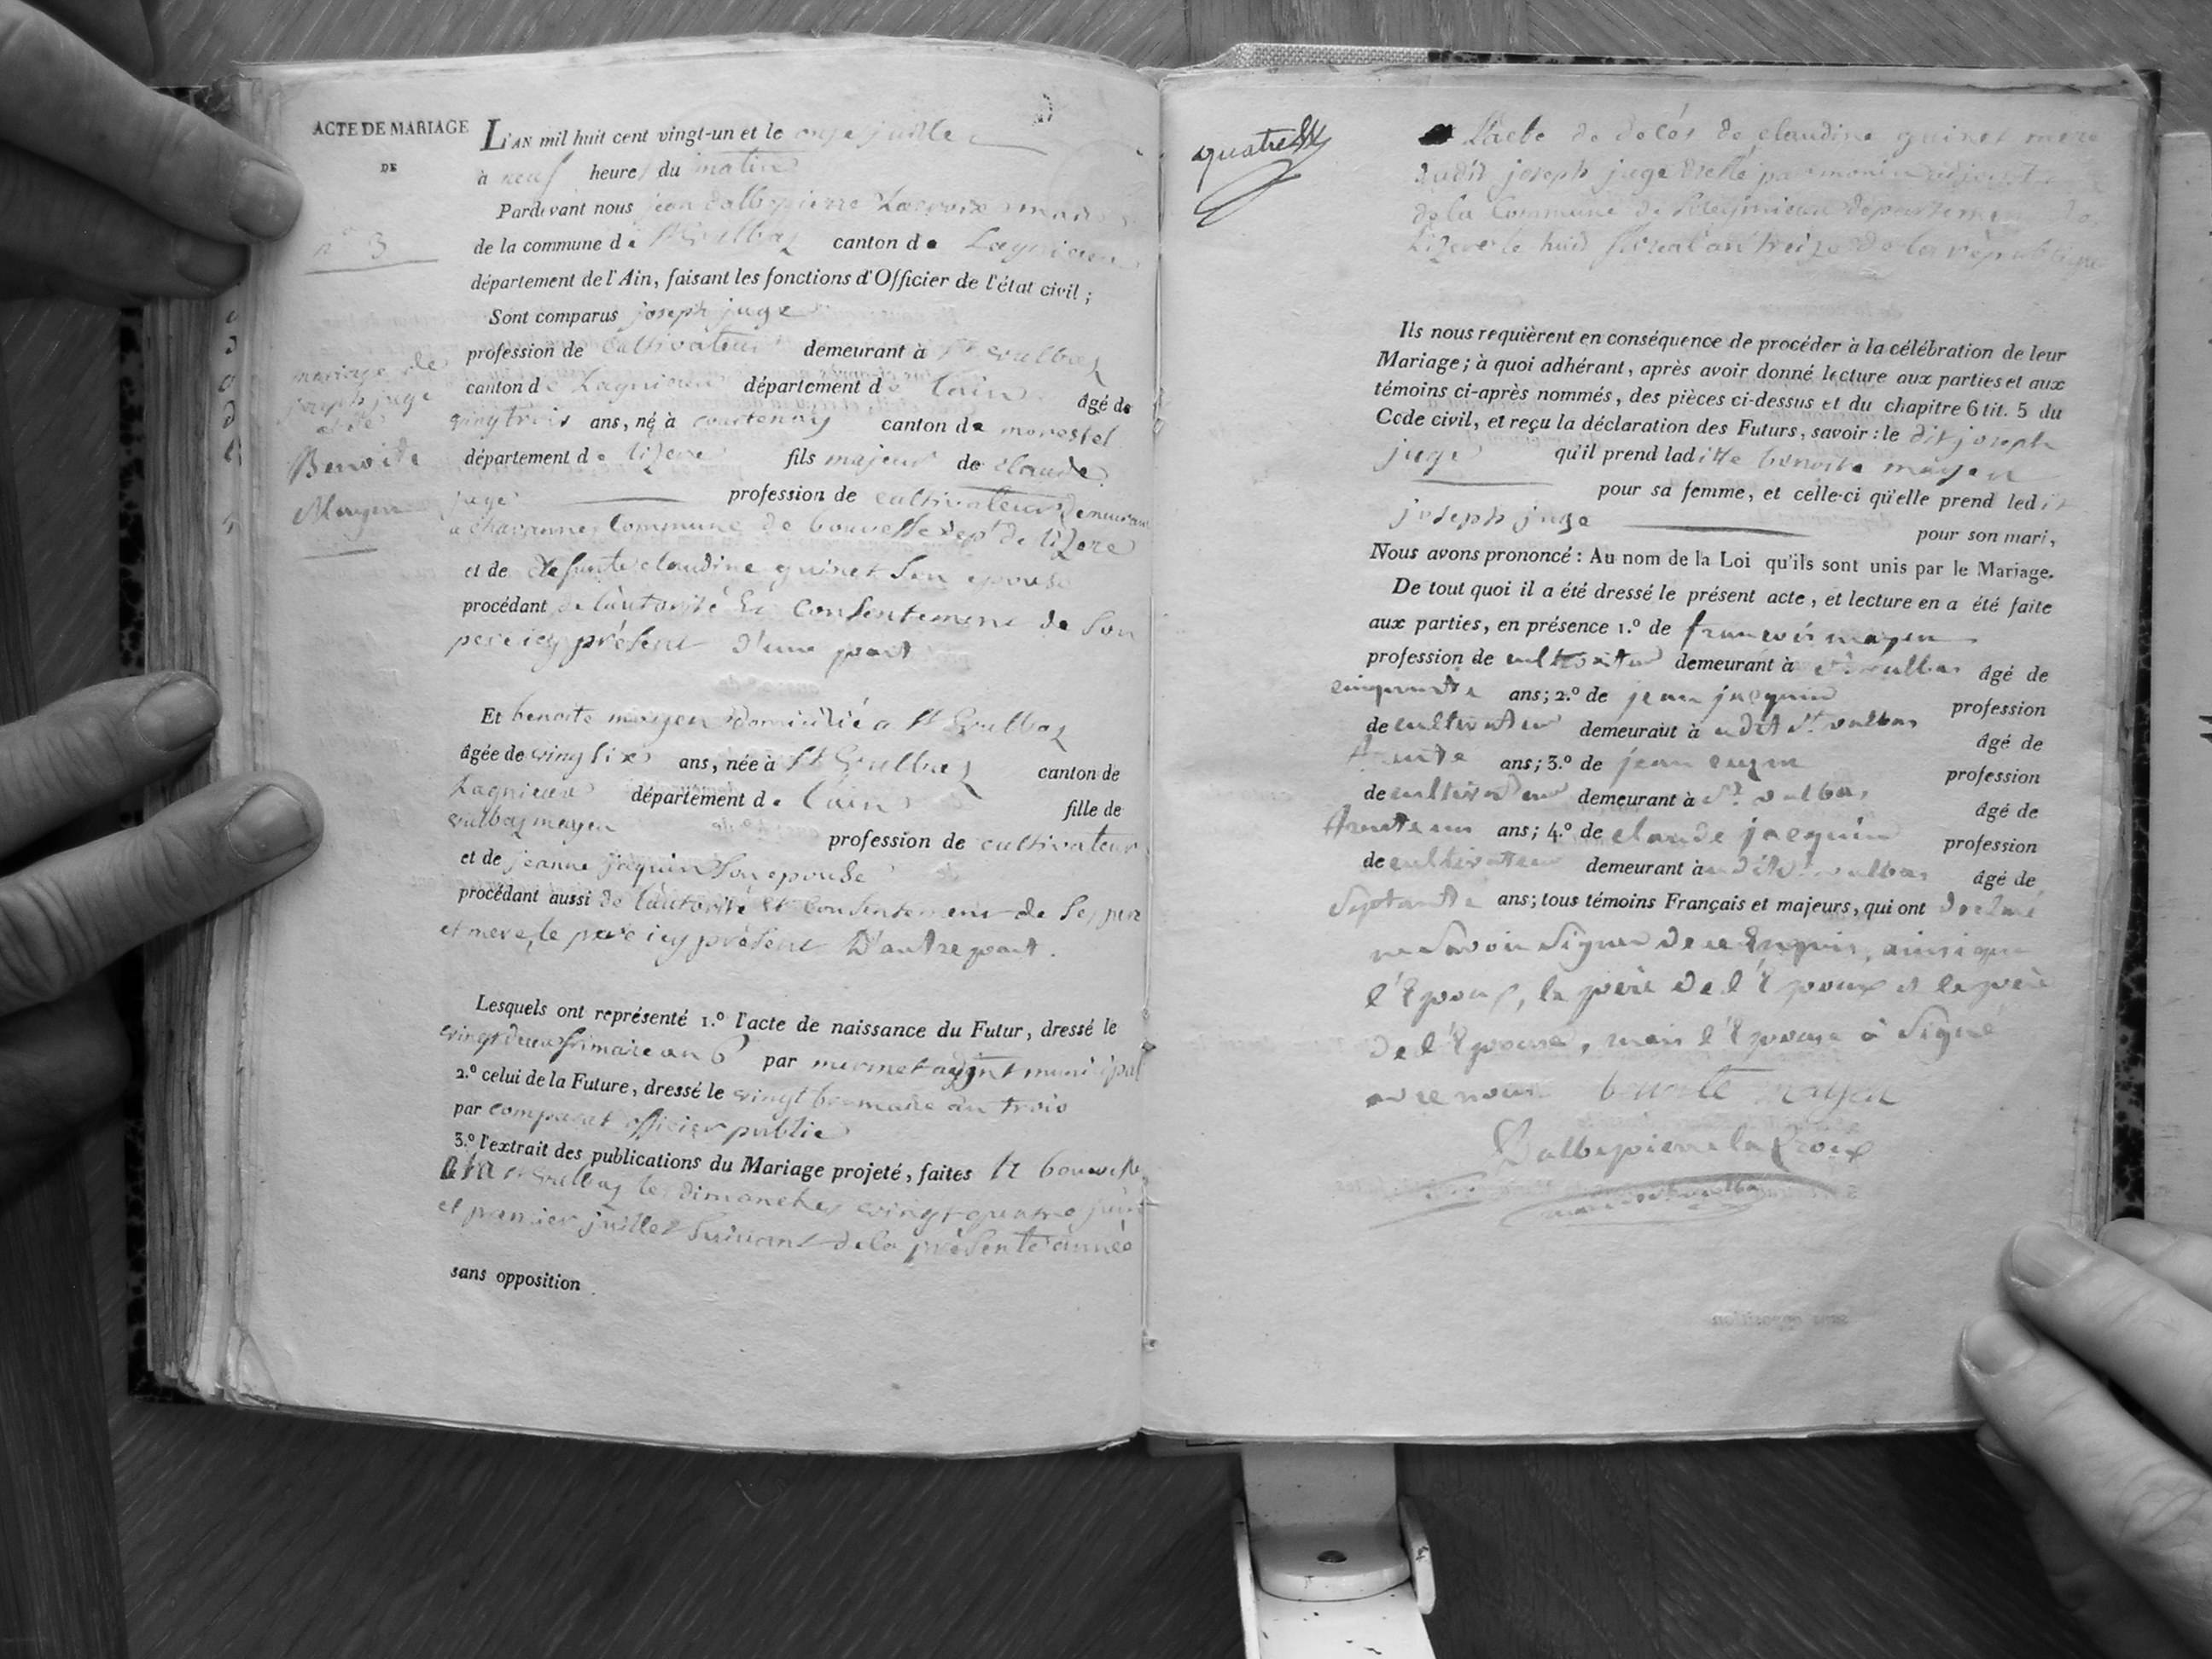 ACTE DE MARIAGE
DE
n° 3
mariage de
joseph juge
et de
Benoite
Mayen
L'AN mil huit cent vingt-un et le onze juillet
à neuf heures du matin
Pardevant nous jean dalbepierre Lacroix maire
de la commune de St Vulbaz canton de Lagnieu
département de l'Ain, faisant les fonctions d'Officier de l'état civil ;
Sont comparus joseph juge
profession de Cultivateur demeurant à St vulbaz
canton de Lagnieu département de lain âgé de
vingtrois ans, né à courtenay canton de morestel
département de lizere fils majeur de claude
juge profession de cultivateur demeurant
a chavannes Commune de bouvesse dept de lizere
et de defunte claudine guinet son epouse
procédant de l'autorité et Consentement de Son
pere icy présent d'une part
Et benoite mayen domiciliée a St Vulbaz
âgée de vingt six ans, née à St Vulbaz canton de
Lagnieu département de lain fille de
vulbaz mayen profession de cultivateur
et de jeanne jaquin Son epouse
procédant aussi de l'autorité et Consentement de Ses pere
et mere, le pere icy présent D'autre part.
Lesquels ont représenté 1.° l'acte de naissance du Futur, dressé le
vingt deux frimaire an 6 par mermet agent municipal
2.° celui de la Future, dressé le vingt brumaire an trois
par comparat officier public
3.° l'extrait des publications du Mariage projeté, faites à bouvesse
et a St vulbaz les dimanches vingt quatre juin
et premier juillet Suivant de la présente année
sans opposition
quatre
L'acte de décés de claudine guinet mere
dudit joseph juge par monin adjoint
de la Commune de departement de
Lizere le huit floreal an treize de la république
Ils nous requièrent en conséquence de procéder à la célébration de leur
Mariage ; à quoi adhérant, après avoir donné lecture aux parties et aux
témoins ci-après nommés, des pièces ci-dessus et du chapitre 6 tit. 5 du
Code civil, et reçu la déclaration des Futurs, savoir : le dit joseph
juge qu'il prend ladite benoite mayen
pour sa femme, et celle-ci qu'elle prend ledit
joseph juge pour son mari,
Nous avons prononcé : Au nom de la Loi qu'ils sont unis par le Mariage.
De tout quoi il a été dressé le présent acte, et lecture en a été faite
aux parties, en présence 1.° de francois mayen
profession de cultivateur demeurant à St vulbas âgé de
cinquante ans ; 2.° de jean jacquin profession
de cultivateur demeurant à udit St vulbas âgé de
trente ans ; 3.° de jean profession
de cultivateur demeurant à St vulbas âgé de
trente un ans ; 4.° de claude jacquin profession
de cultivateur demeurant à udit St vulbas âgé de
Septante ans ; tous témoins Français et majeurs, qui ont declaré
ne Savoir Signer de ce Enquis, ainsi que
l'Epoux, le père de l'Epoux et le père
de l'Epouse, mais l'Epouse à Signé
avec nous benoite mayen
Dalbepierre la Croix